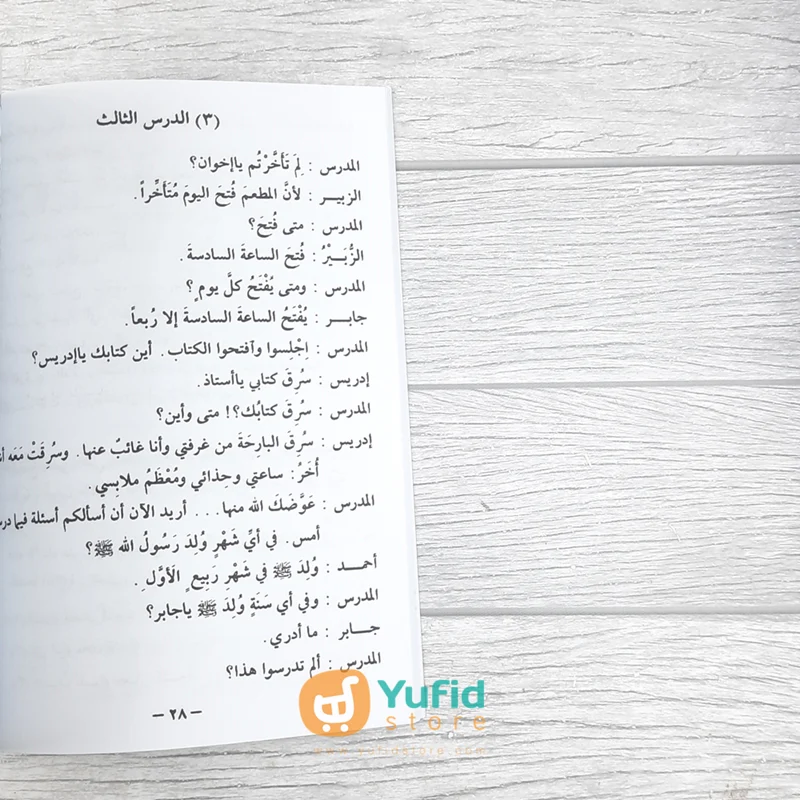 (٣) الدرس الثالث
المدرس : لِمَ تَأَخَّرْتُم ياإخوان؟
الزبيـــر : لأنَّ المطعمَ فُتحَ اليومَ مُتَأَخِّراً.
المدرس : متى فُتحَ؟
الزُّبَـــيْرُ : فُتحَ الساعةَ السادسةَ.
المدرس : ومتى يُفْتَحُ كلَّ يومٍ؟
جابـــر : يُفْتَحُ الساعةَ السادسةَ إلا رُبعاً.
المدرس : اِجْلِسوا وآفتحوا الكتاب. أين كتابك ياإدريس؟
إدريس : سُرِقَ كتابي ياأستاذ.
المدرس : سُرِقَ كتابُك؟! متى وأين؟
إدريس : سُرِقَ البارِحَةَ من غرفتي وأنا غائبٌ عنها. وسُرِقَتْ مَعَه
أُخَرُ: ساعتي وحِذائي ومُعْظَمُ ملابِسي.
المدرس : عَوَّضَكَ الله منها... أريد الآن أن أسألكم أسئلة فيما
أمس. في أيِّ شَهْرٍ وُلِدَ رَسُولُ الله ﷺ؟
أحمـــد : وُلِدَ ﷺ في شَهْرِ رَبِيعٍ الَأوَّلِ.
المدرس : وفي أي سَنَةٍ وُلِدَ ﷺ ياجابر؟
جـــابر : ما أدري.
المدرس : ألم تدرسوا هذا؟
— ٢٨ —
Yufid
store
www.yufidstore.com